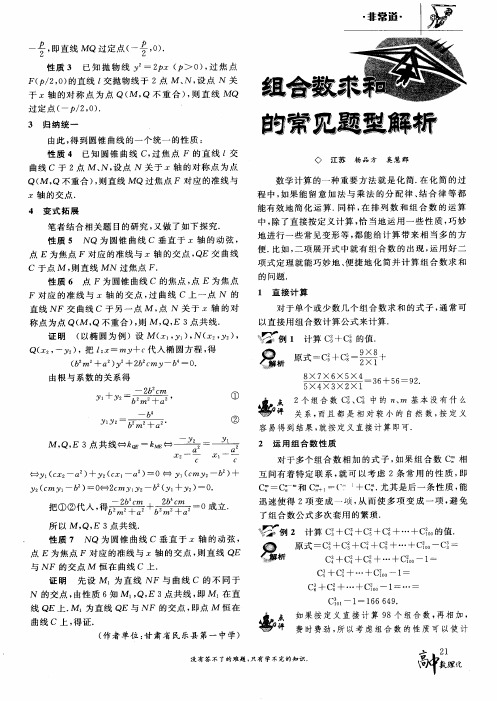 ·非常道·
－p/2,即直线 MQ 过定点(－p/2,0).
性质 3 已知抛物线 y²=2px (p>0),过焦点
F(p/2,0)的直线 l 交抛物线于 2 点 M、N,设点 N 关
于 x 轴的对称点为点 Q(M,Q 不重合),则直线 MQ
过定点(－p/2,0).
3 归纳统一
由此,得到圆锥曲线的一个统一的性质:
性质 4 已知圆锥曲线 C,过焦点 F 的直线 l 交
曲线 C 于 2 点 M、N,设点 N 关于 x 轴的对称点为点
Q(M,Q 不重合),则直线 MQ 过焦点 F 对应的准线与
x 轴的交点.
4 变式拓展
笔者结合相关题目的研究,又做了如下探究.
性质 5 NQ 为圆锥曲线 C 垂直于 x 轴的动弦,
点 E 为焦点 F 对应的准线与 x 轴的交点,QE 交曲线
C 于点 M,则直线 MN 过焦点 F.
性质 6 点 F 为圆锥曲线 C 的焦点,点 E 为焦点
F 对应的准线与 x 轴的交点,过曲线 C 上一点 N 的
直线 NF 交曲线 C 于另一点 M,点 N 关于 x 轴的对
称点为点 Q(M,Q 不重合),则 M,Q,E 3 点共线.
证明 (以椭圆为例) 设 M(x₁,y₁),N(x₂,y₂),
Q(x₂,－y₂), 把 l:x=my+c 代入椭圆方程,得
(b²m²+a²)y²+2b²cmy－b⁴=0.
由根与系数的关系得
y₁+y₂=－2b²cm/(b²m²+a²), ①
y₁y₂=－b⁴/(b²m²+a²). ②
M,Q,E 3 点共线⇔k_QE=k_ME⇔－y₂/(x₂－a²/c)=y₁/(x₁－a²/c)
⇔y₁(cx₂－a²)+y₂(cx₁－a²)=0⇔y₁(cmy₂－b²)+
y₂(cmy₁－b²)=0⇔2cmy₁y₂－b²(y₁+y₂)=0.
把①②代入,得－2b⁴cm/(b²m²+a²)+2b⁴cm/(b²m²+a²)=0 成立.
所以 M,Q,E 3 点共线.
性质 7 NQ 为圆锥曲线 C 垂直于 x 轴的动弦,
点 E 为焦点 F 对应的准线与 x 轴的交点,则直线 QE
与 NF 的交点 M 恒在曲线 C 上.
证明 先设 M₁ 为直线 NF 与曲线 C 的不同于
N 的交点,由性质 6 知 M₁,Q,E 3 点共线,即 M₁ 在直
线 QE 上. M₁ 为直线 QE 与 NF 的交点,即点 M 恒在
曲线 C 上,得证.
(作者单位:甘肃省民乐县第一中学)
组合数求和
的常见题型解析
◇ 江苏 杨品方 吴慧郡
数学计算的一种重要方法就是化简.在化简的过
程中,如果能留意加法与乘法的分配律、结合律等都
能有效地简化运算.同样,在排列数和组合数的运算
中,除了直接按定义计算,恰当地运用一些性质,巧妙
地进行一些常见变形等,都能给计算带来相当多的方
便.比如,二项展开式中就有组合数的出现,运用好二
项式定理就能巧妙地、便捷地化简并计算组合数求和
的问题.
1 直接计算
对于单个或少数几个组合数求和的式子,通常可
以直接用组合数计算公式来计算.
例 1 计算 C₉²+C₈⁵ 的值.
解析 原式=C₉²+C₈⁵=(9×8)/(2×1)+
(8×7×6×5×4)/(5×4×3×2×1)=36+56=92.
点评 2 个组合数 C₉²、C₈⁵ 中的 n、m 基本没有什么
关系,而且都是相对较小的自然数,按定义
容易得到结果,就按定义直接计算即可.
2 运用组合数性质
对于多个组合数相加的式子,如果组合数 Cₙᵐ 相
互间有着特定联系,就可以考虑 2 条常用的性质,即
Cₙᵐ=Cₙⁿ⁻ᵐ 和 Cₙ₊₁ᵐ=Cₙᵐ⁻¹+Cₙᵐ.尤其是后一条性质,能
迅速使得 2 项变成一项,从而使多项变成一项,避免
了组合数公式多次套用的繁琐.
例 2 计算 C₃²+C₄²+C₅²+…+C₁₀₀² 的值.
解析 原式=C₃³+C₃²+C₄²+C₅²+…+C₁₀₀²－C₃³=
C₄³+C₄²+C₅²+…+C₁₀₀²－1=
C₅³+C₅²+…+C₁₀₀²－1=
C₆³+C₆²+…+C₁₀₀²－1=…=
C₁₀₁³－1=166 649.
点评 如果按定义直接计算 98 个组合数,再相加,
费时费劲,所以考虑组合数的性质可以使计
没有答不了的难题,只有学不完的知识.
21
高中数理化